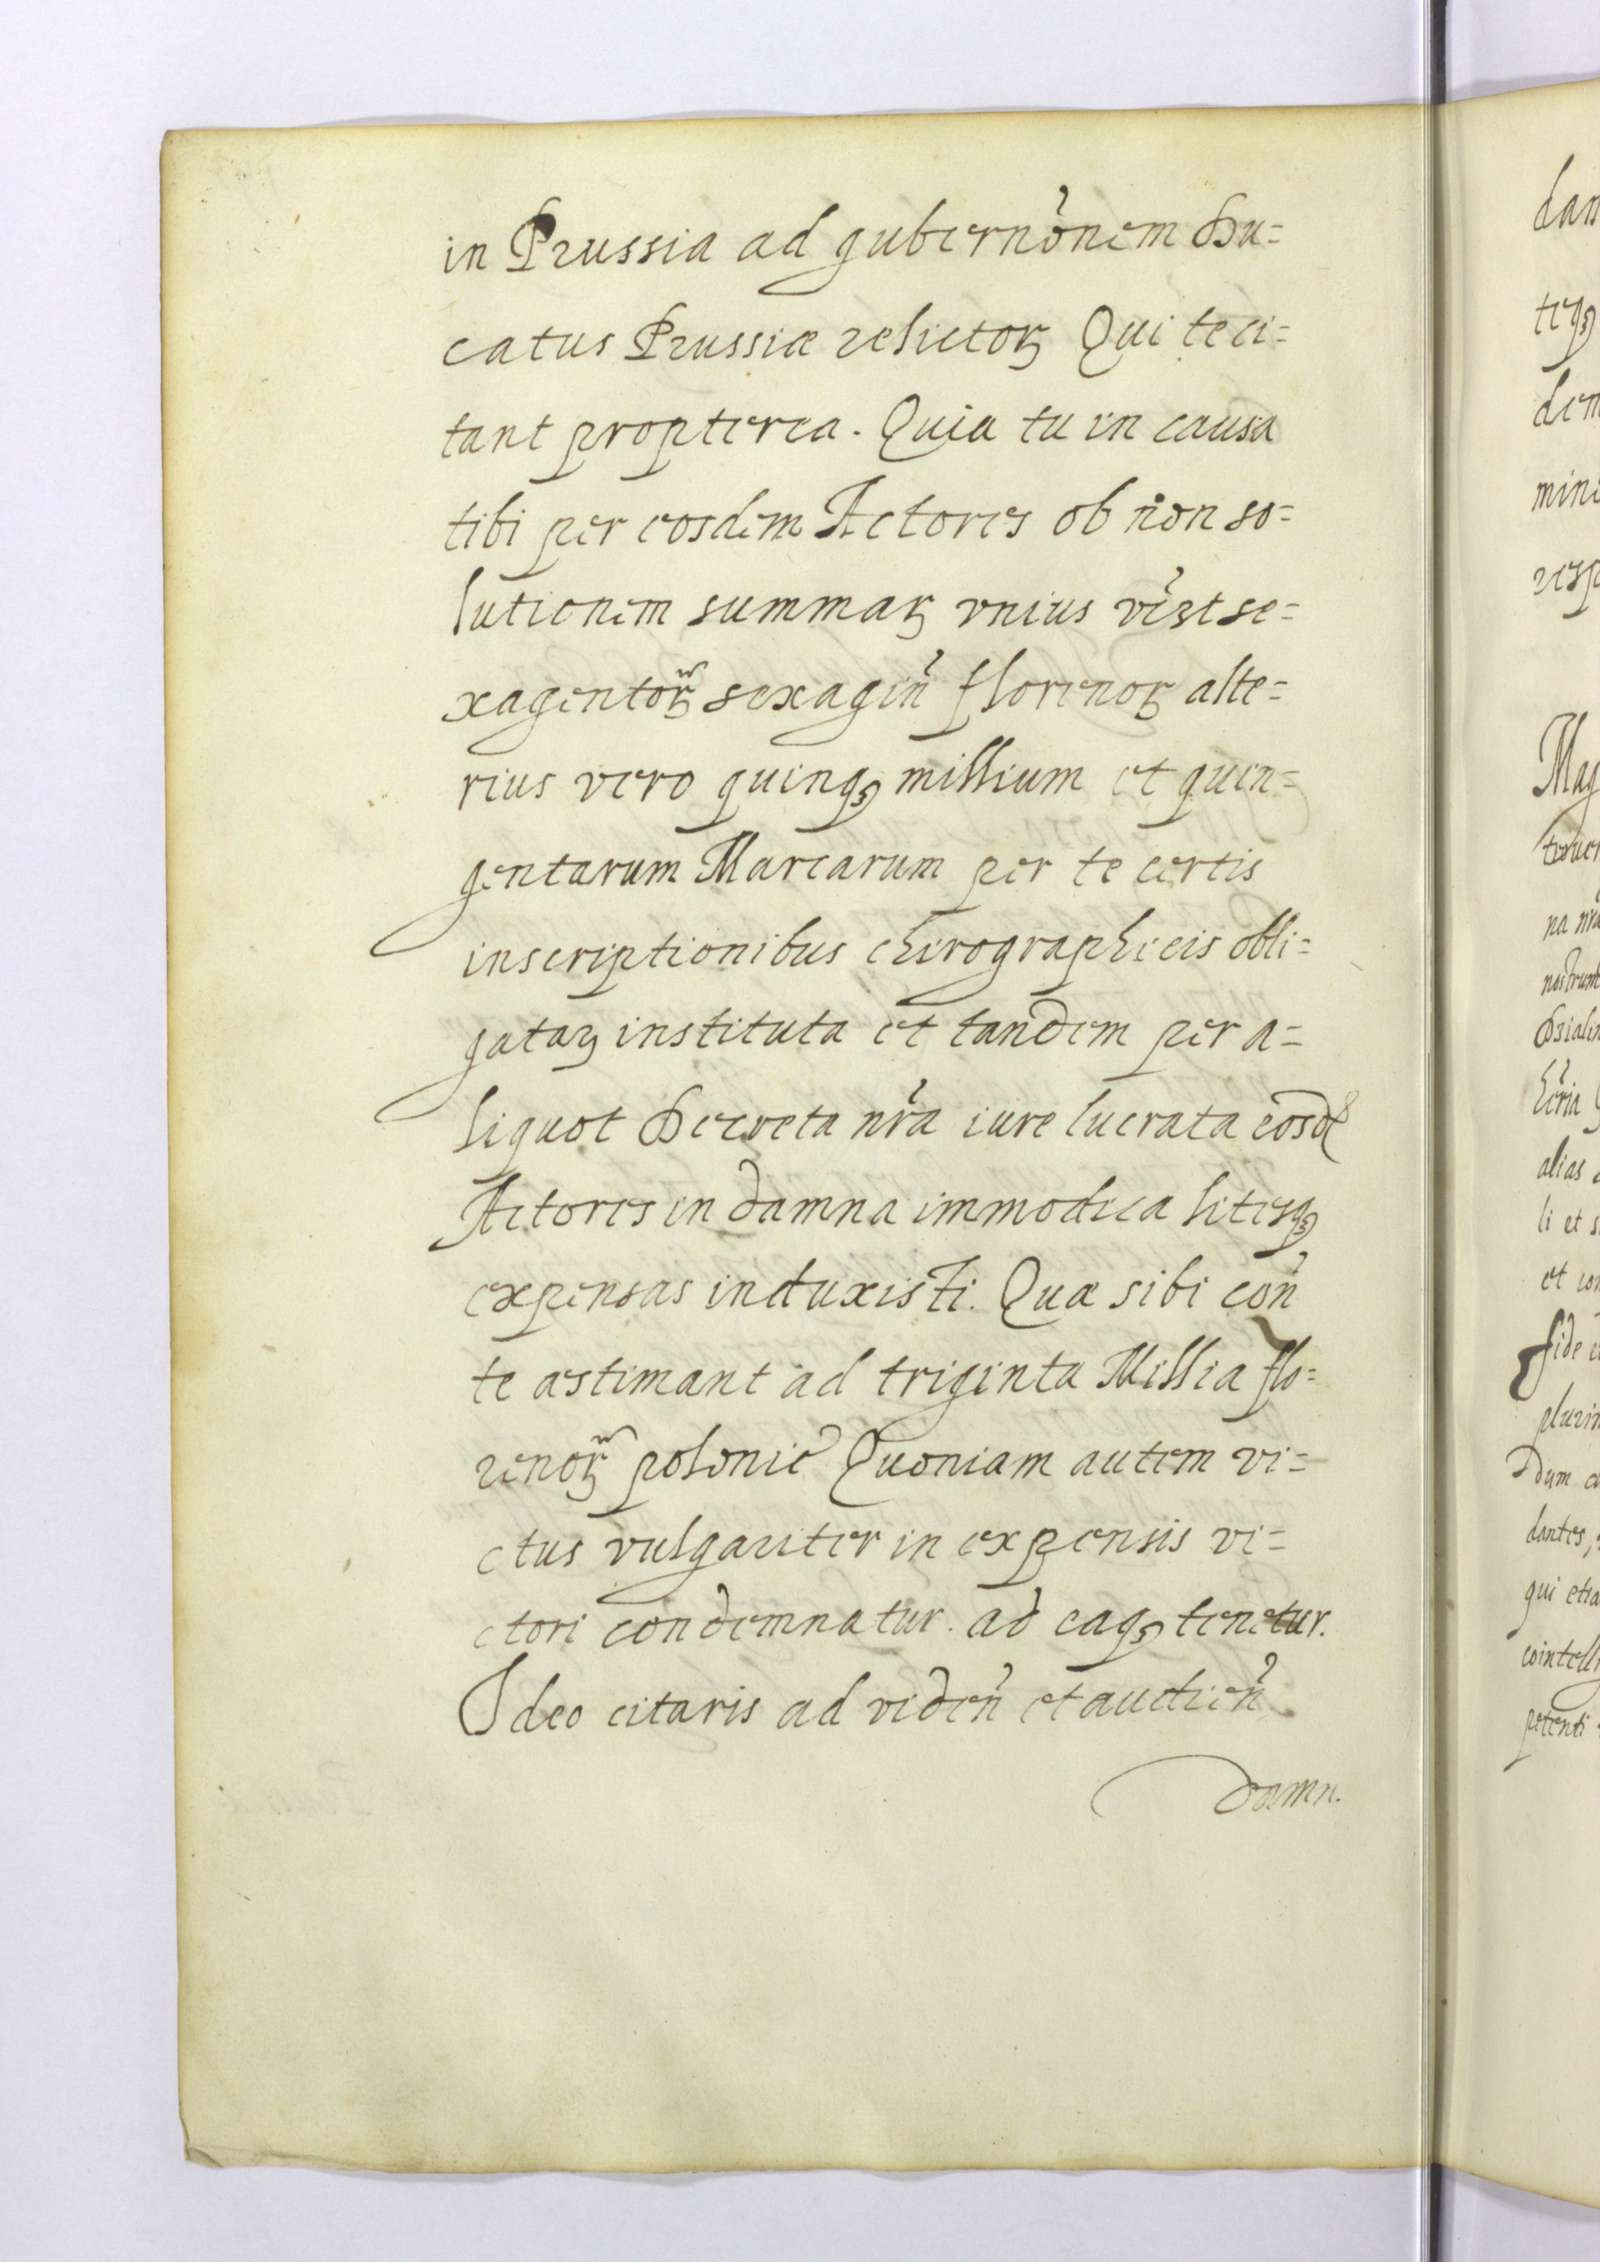 in Prussia ad gubern̉onem Du=
catus Prussiæ relictoꝝ Qui te ci=
tant propterea. Quia tu in causa
tibi per eosdem Actores ob non so=
lutionem summaꝝ vnius vĩzt se=
xagentoꝝ sexagiñ florenoꝝ alte=
rius vero quinqꝫ millium et quin=
gentarum Marcarum per te certis
inscriptionibus chirographicis obli=
gataꝝ instituta et tandem per a=
liquot Decreta nr̃a iure lucrata eosd̃
Actores in damna immodica litisqꝫ
expensas induxisti. Quæ sibi coñ
te æstimant ad triginta Millia flo=
renoꝝ polonic̃ Quoniam autem vi=
ctus vulgariter in expensis vi=
ctori condemnatur. ad eaqꝫ tenetur.
Ideo citaris ad videñ et audieñ
damn.
dan
tisqꝫ
dem
mini
resp
Mag
na nr̃a
nostrum
alias
li et s
et con
fide
plurim
dum
dantes,
qui etia
cointelli
petenti